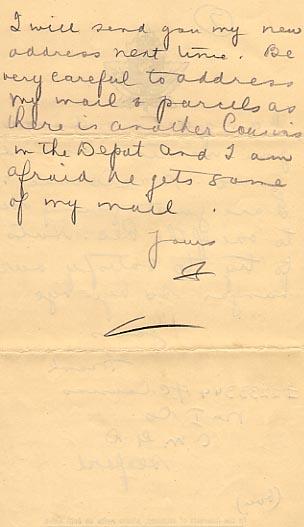 I will send you my new
address next time. Be
very careful to address
my mail & parcels as
there is another Cousins
in the Depot and I am
afraid he gets some
of my mail.
Yours